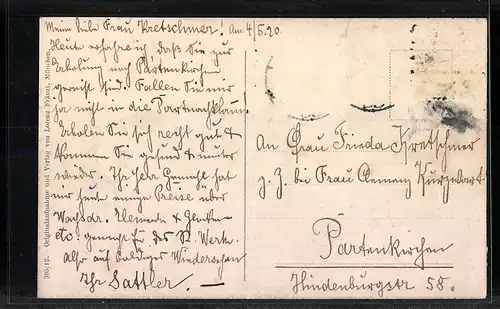 Meine liebe Frau Kretschmer! Am 4/5.20.
Heute erfahre ich daß Sie zur
Erholung nach Partenkirchen
gereist sind. Fallen Sie mir
ja nicht in die Partnachklamm
Erholen Sie sich recht gut &
kommen Sie gesund & munter
wieder. Ihr Herr Gemahl hat
mir heute einige Preise über
Elemente & Glocken
etc. gemacht für das Werk.
also auf baldiges Wiedersehen
Ihr Sattler. —
An Frau Frieda Kretschmer
z. Z. bei Frau Kurzwart
Partenkirchen
Hindenburgstr 58.
305/12. Originalaufnahme und Verlag von Lorenz Fränzl, München.